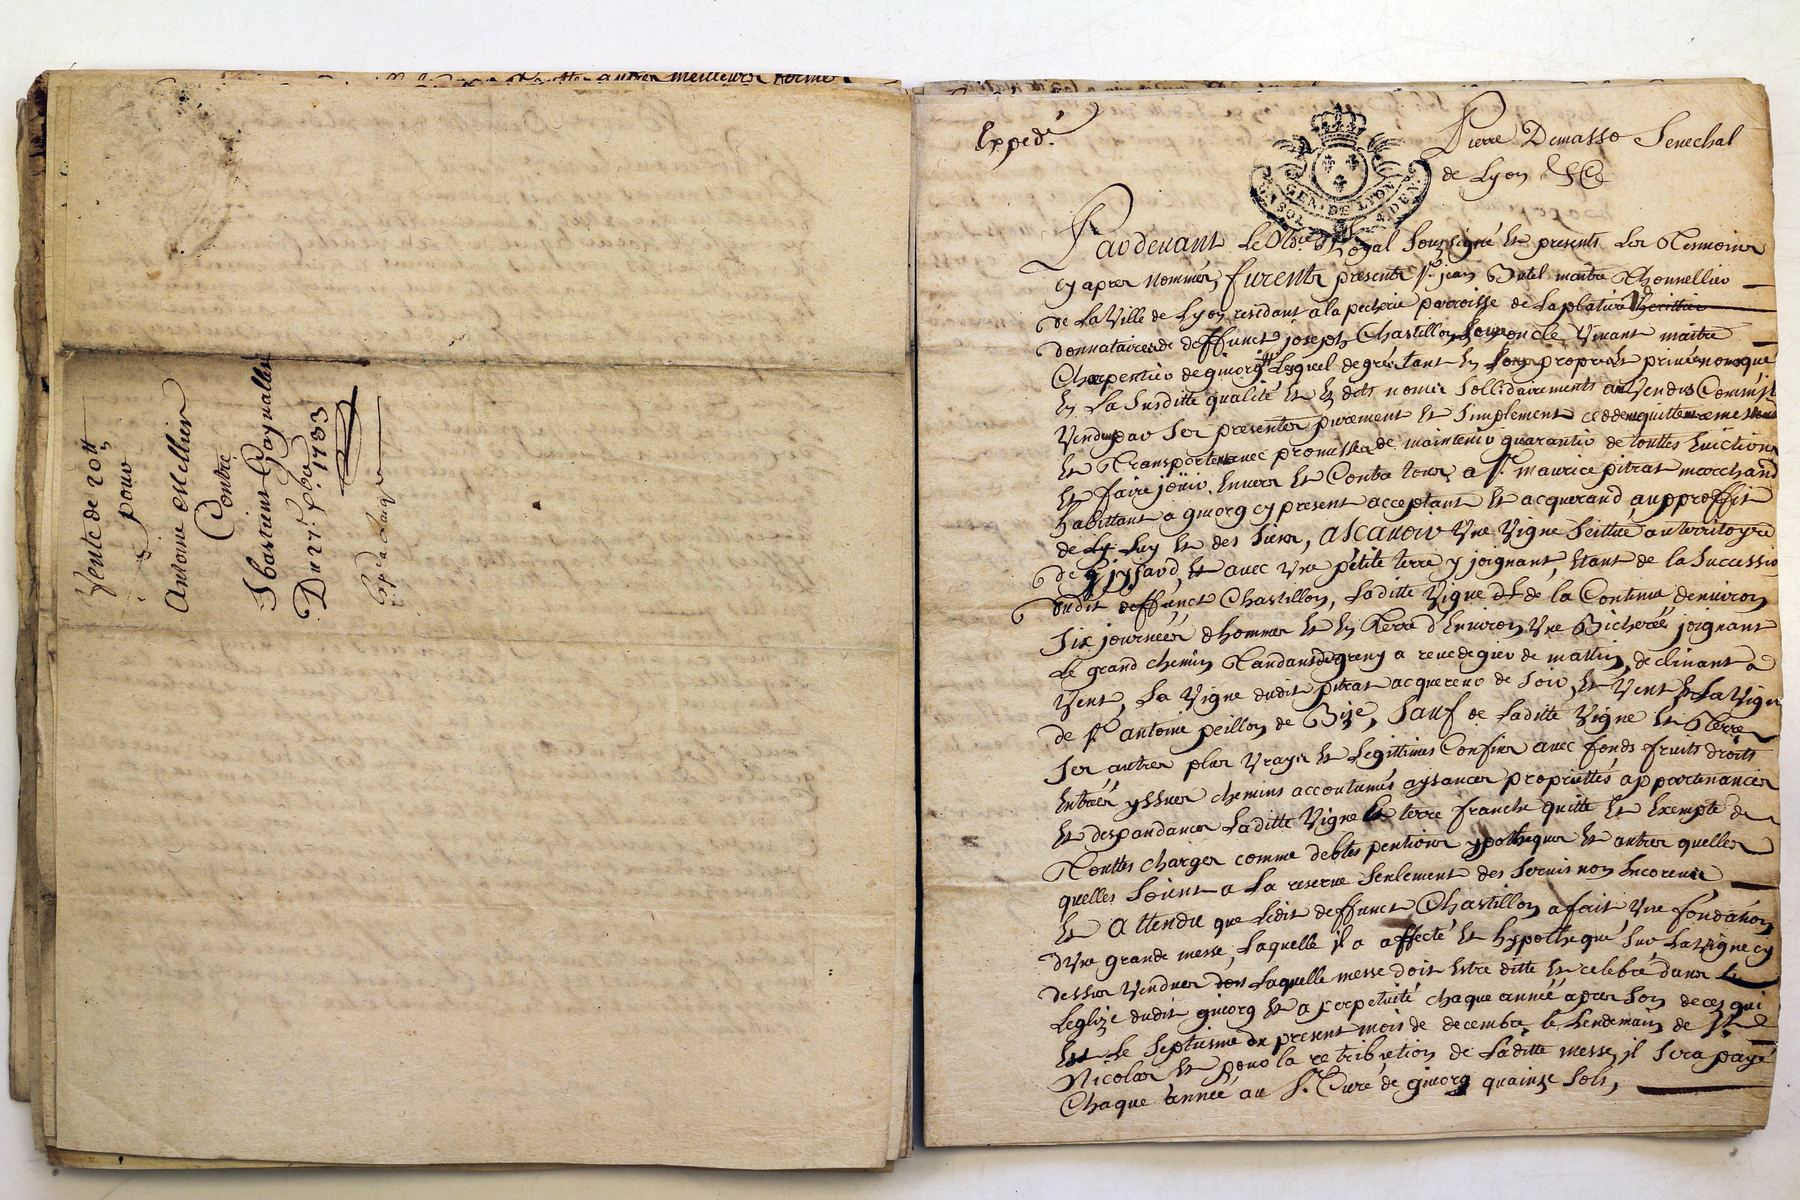 Vente de 20tt
pour
Antoine
Contre
Du 27e. 7bre 1733
Expedé.
Pierre Demasso Senechal
de Lyon &c
GEN. DE LYON
4 DEN
Pardevant Le No.re Royal Soussigné Et presents Les Tesmoins
cy apres nommés, furent presents Sr. jean Butel maitre Thonnellier
de La Ville de Lyon residant a la pecherie parroisse de La platiere
donnataire de deffunct joseph Chastillon Son oncle Vivant maitre
Charpentier de givorg Lequel de gré tant En Son propre Et privé nom que
En La Susditte qualité Et Es dits noms Sollidairements a Vendu Comme
Vend par Ses presentes purement Et Simplement cedde quitte remet
Et Transporte avec promesse de maintenir guarantir de touttes Evictions
Et faire jouir Envers Et Contre tous a Sr. maurice pitrat marchand
habittant a givorg cy present acceptant Et acquerand au proffit
de Luy Et des Siens, a Scavoir Une Vigne Scittué au territoyre
de gissard, Et avec Une petite terre y joignant, Etant de la Succession
dudit deffunct Chastillon, Laditte Vigne de la Contenue denviron
Six journées dhommes Et En Terre d'Environ Une Bicherée joignant
Le grand chemin Tandant de greny a rivedegier de mattin, declinant a
Vent, La Vigne dudit pitrat acquereur de Soir, Et Vent Et La Vigne
de Sr. antoine peillon de Bize, Sauf de Laditte Vigne Et Terre
Ses autres plus Vrays Et Legittimes Confins avec fonds fruits droits
Entrées yssues chemins accoutumés aysances propriettés appartenances
Et despandances Laditte Vigne Et terre franche quitte Et Exempte de
Touttes charges comme debtes pentions ypotheques Et autres quelles
quelles Soient a La reserve Seulement des Servis non Encorrus
Et Attendu que Ledit deffunct Chastillon a fait Une fondation
d'Une grande messe, Laquelle il a affecté Et hypothequé Sur La Vigne cy
dessus Vendue Laquelle messe doit Estre ditte Et celebré dans
Leglize dudit givorg Et a perpetuité chaque année apres Son deces qui
Est Le Septiesme du present mois de decembre le Lendemain de St.
Nicolas Et pour la retribution de Laditte messe, il Sera payé
Chaque année au Sr. Curé de givorg quainze Sols,